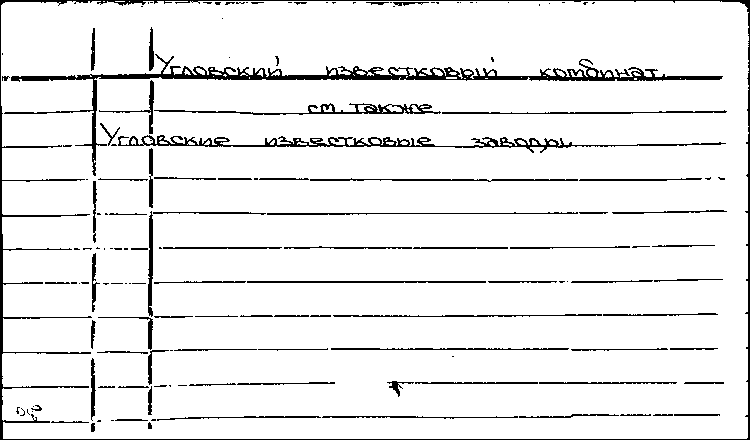 Угловский известковый комбинат
см. также
Угловские известковые заводы